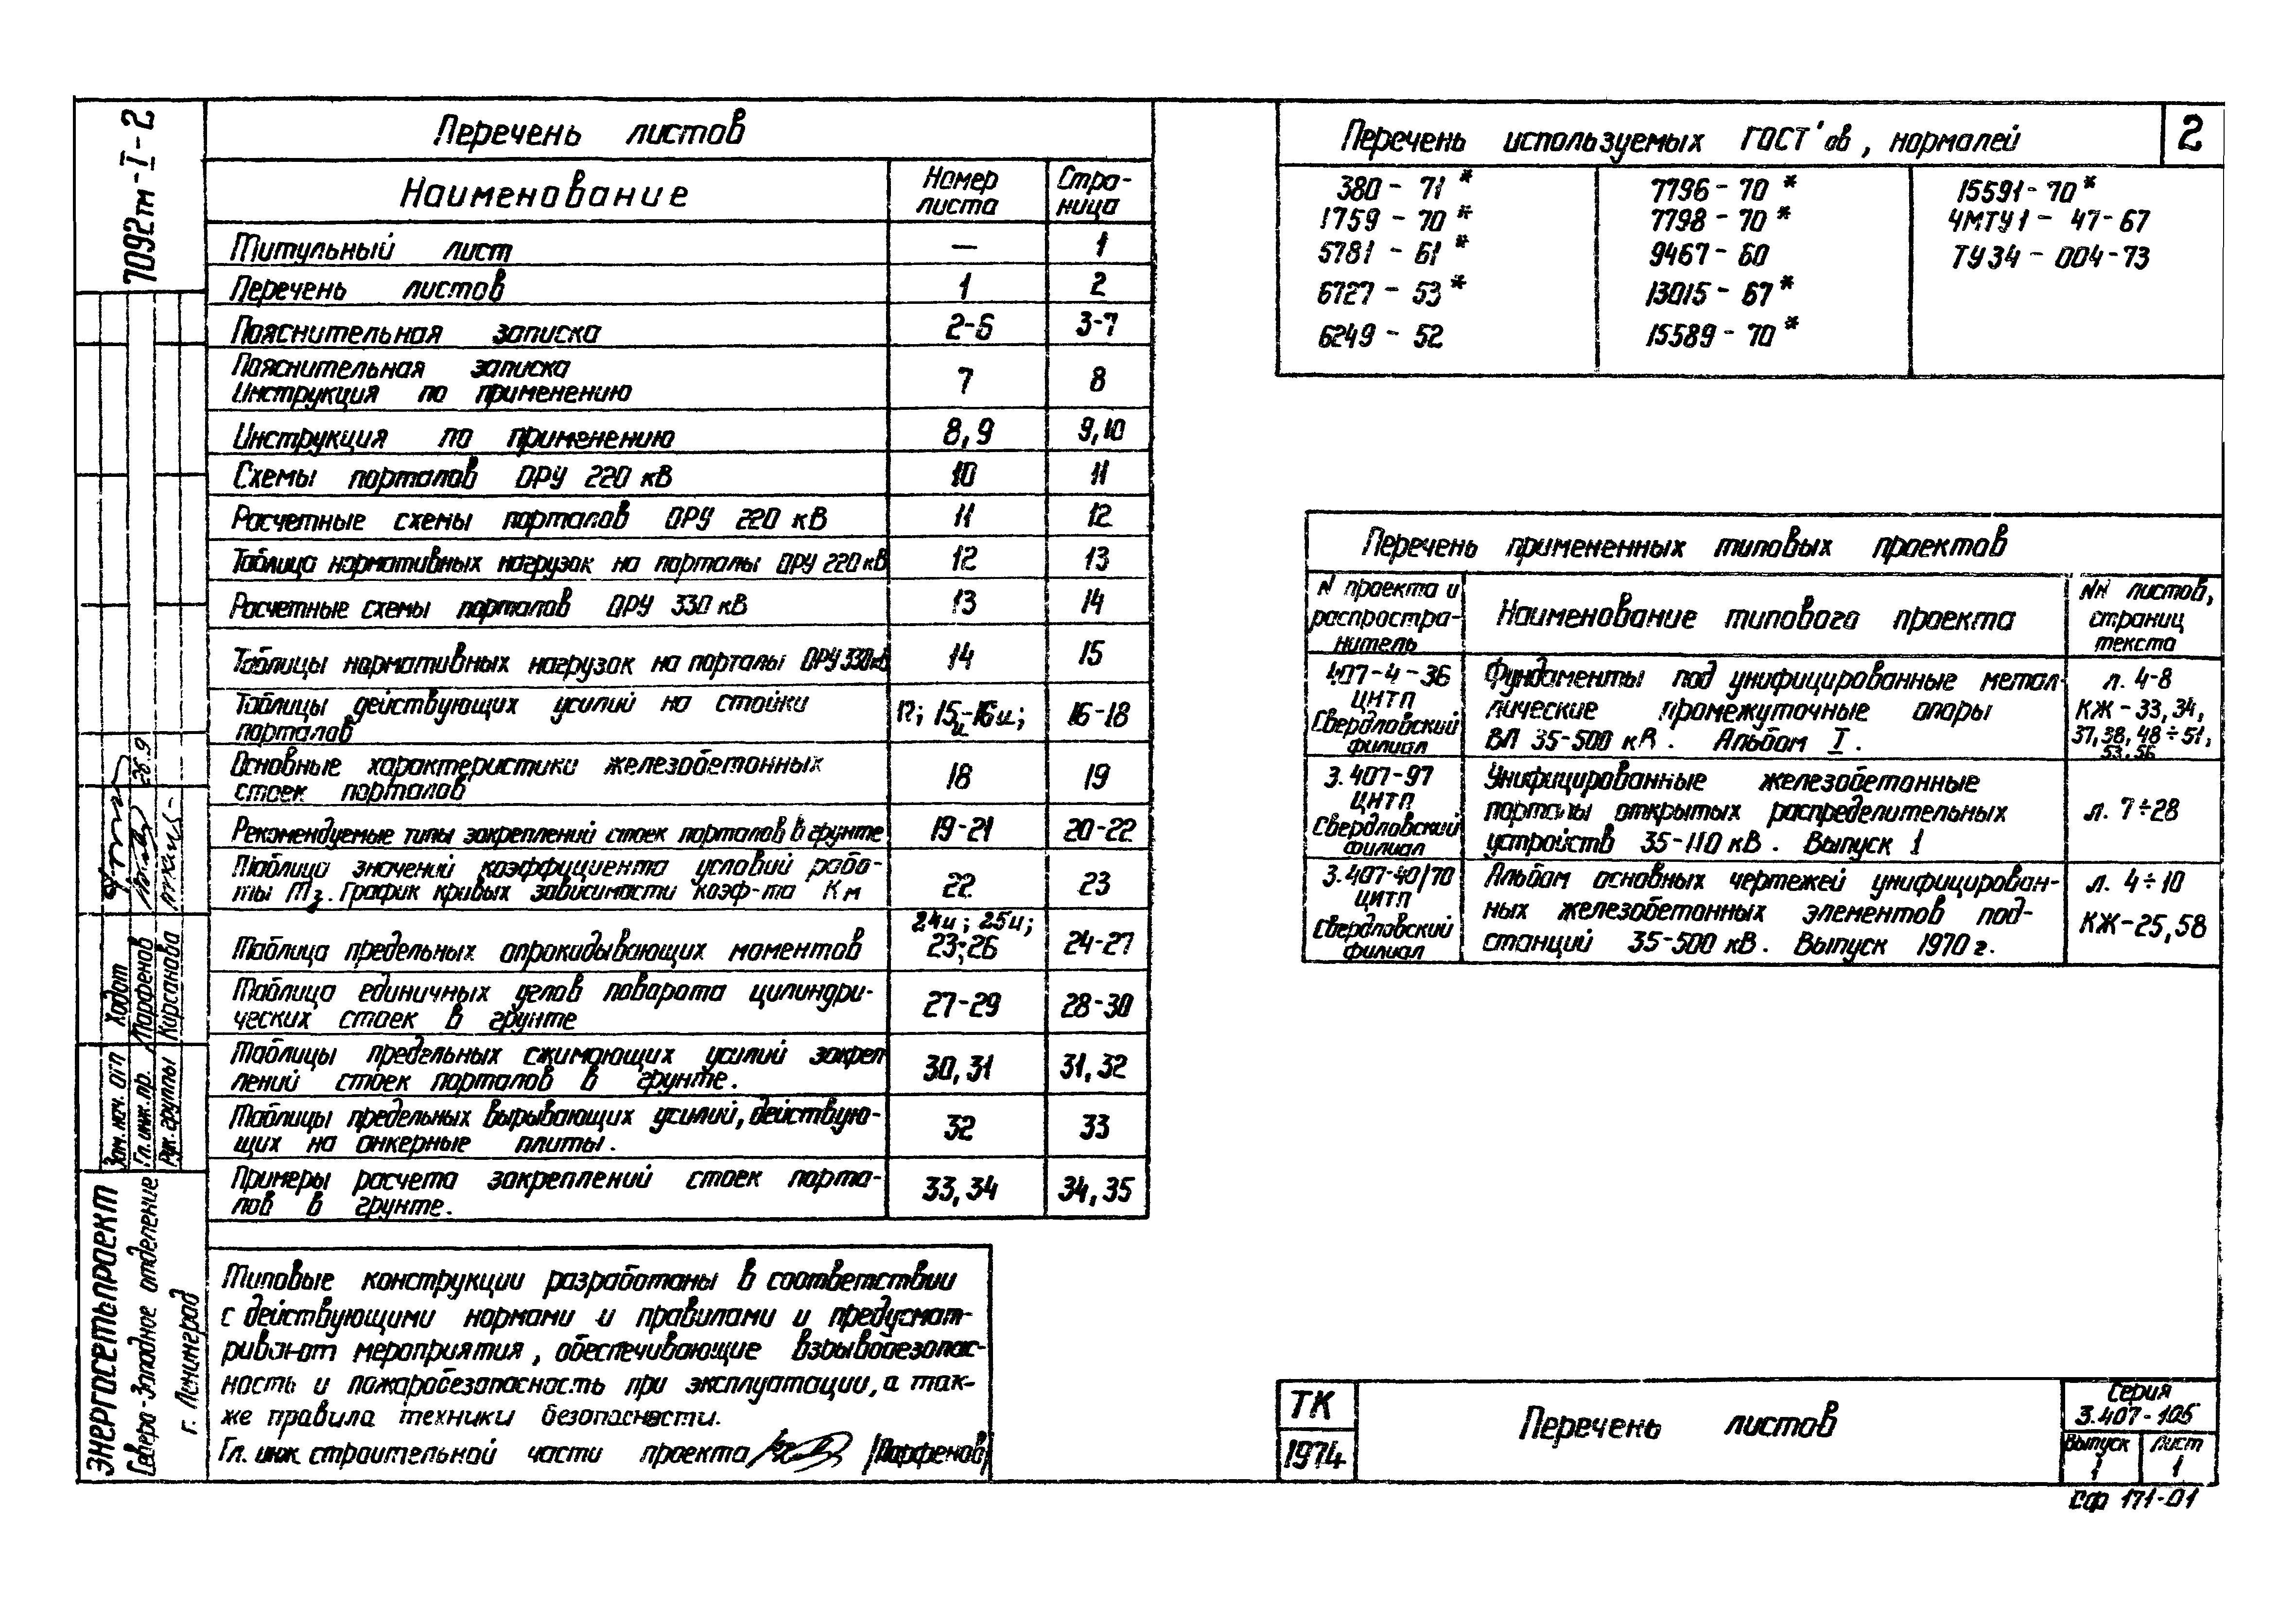 7092тм-I-2
Перечень листов
Наименование Номер листа Стра-ница
Титульный лист — 1
Перечень листов 1 2
Пояснительная записка 2-6 3-7
Пояснительная записка
Инструкция по применению 7 8
Инструкция по применению 8,9 9,10
Схемы порталов ОРУ 220 кВ 10 11
Расчетные схемы порталов ОРУ 220 кВ 11 12
Таблица нормативных нагрузок на порталы ОРУ 220 кВ 12 13
Расчетные схемы порталов ОРУ 330 кВ 13 14
Таблицы нормативных нагрузок на порталы ОРУ 330 кВ 14 15
Таблицы действующих усилий на стойки
порталов 17; 15и-16и; 16-18
Основные характеристики железобетонных
стоек порталов 18 19
Рекомендуемые типы закреплений стоек порталов в грунте 19-21 20-22
Таблица значений коэффициента условий рабо-
ты mз. График кривых зависимости коэф-та Км 22 23
24и; 25и;
Таблица предельных опрокидывающих моментов 23;26 24-27
Таблица единичных углов поворота цилиндри-
ческих стоек в грунте 27-29 28-30
Таблицы предельных сжимающих усилий закреп
лений стоек порталов в грунте. 30,31 31,32
Таблицы предельных вырывающих усилий, действую-
щих на анкерные плиты. 32 33
Примеры расчета закреплений стоек порта-
лов в грунте. 33,34 34,35
Типовые конструкции разработаны в соответствии
с действующими нормами и правилами и предусмат-
ривают мероприятия, обеспечивающие взрывобезопас-
ность и пожаробезопасность при эксплуатации, а так-
же правила техники безопасности.
Гл. инж строительной части проекта /Парфенов/
Перечень используемых ГОСТ'ов, нормалей 2
380-71* 7796-70* 15591-70*
1759-70* 7798-70* ЧМТУ1-47-67
5781-61* 9467-60 ТУ34-004-73
6727-53* 13015-67*
6249-52 15589-70*
Перечень примененных типовых проектов
N проекта и
распростра-
нитель
Наименование типового проекта
NN листов,
страниц
текста
407-4-36
ЦИТП
Свердловский
филиал
Фундаменты под унифицированные метал-
лические промежуточные опоры
ВЛ 35-500 кВ. Альбом I.
л. 4-8
КЖ-33,34,
37,38,48÷51,
53,56
3.407-97
ЦИТП
Свердловский
филиал
Унифицированные железобетонные
порталы открытых распределительных
устройств 35-110 кВ. Выпуск 1
л. 7÷28
3.407-40/70
ЦИТП
Свердловский
филиал
Альбом основных чертежей унифицирован-
ных железобетонных элементов под-
станций 35-500 кВ. Выпуск 1970 г.
л. 4÷10
КЖ-25,58
ТК
1974
Перечень листов
Серия
3.407-105
Выпуск
1
Лист
1
Сф 171-01
Зам. нач. ОТП Ходот
Гл. инж. пр. Парфенов
Рук. группы Кирсанова
ЭНЕРГОСЕТЬПРОЕКТ
Северо-Западное отделение
г. Ленинград